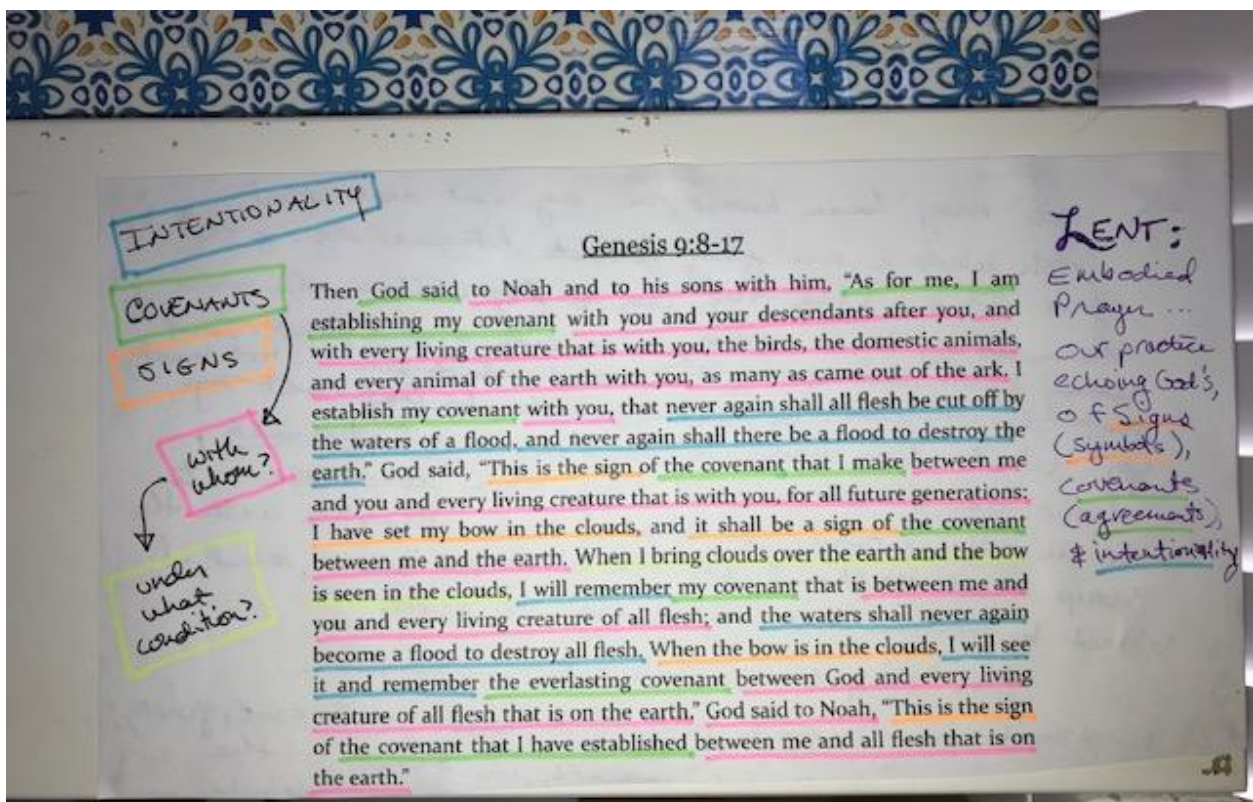 INTENTIONALITY
COVENANTS
SIGNS
with
whom?
under
what
condition?
Genesis 9:8-17
Then God said to Noah and to his sons with him, “As for me, I am
establishing my covenant with you and your descendants after you, and
with every living creature that is with you, the birds, the domestic animals,
and every animal of the earth with you, as many as came out of the ark. I
establish my covenant with you, that never again shall all flesh be cut off by
the waters of a flood, and never again shall there be a flood to destroy the
earth.” God said, “This is the sign of the covenant that I make between me
and you and every living creature that is with you, for all future generations:
I have set my bow in the clouds, and it shall be a sign of the covenant
between me and the earth. When I bring clouds over the earth and the bow
is seen in the clouds, I will remember my covenant that is between me and
you and every living creature of all flesh; and the waters shall never again
become a flood to destroy all flesh. When the bow is in the clouds, I will see
it and remember the everlasting covenant between God and every living
creature of all flesh that is on the earth.” God said to Noah, “This is the sign
of the covenant that I have established between me and all flesh that is on
the earth.”
LENT:
Embodied
Prayer ...
our practice
echoing God's,
of Signs
(symbols),
covenants
(agreements),
& intentionality